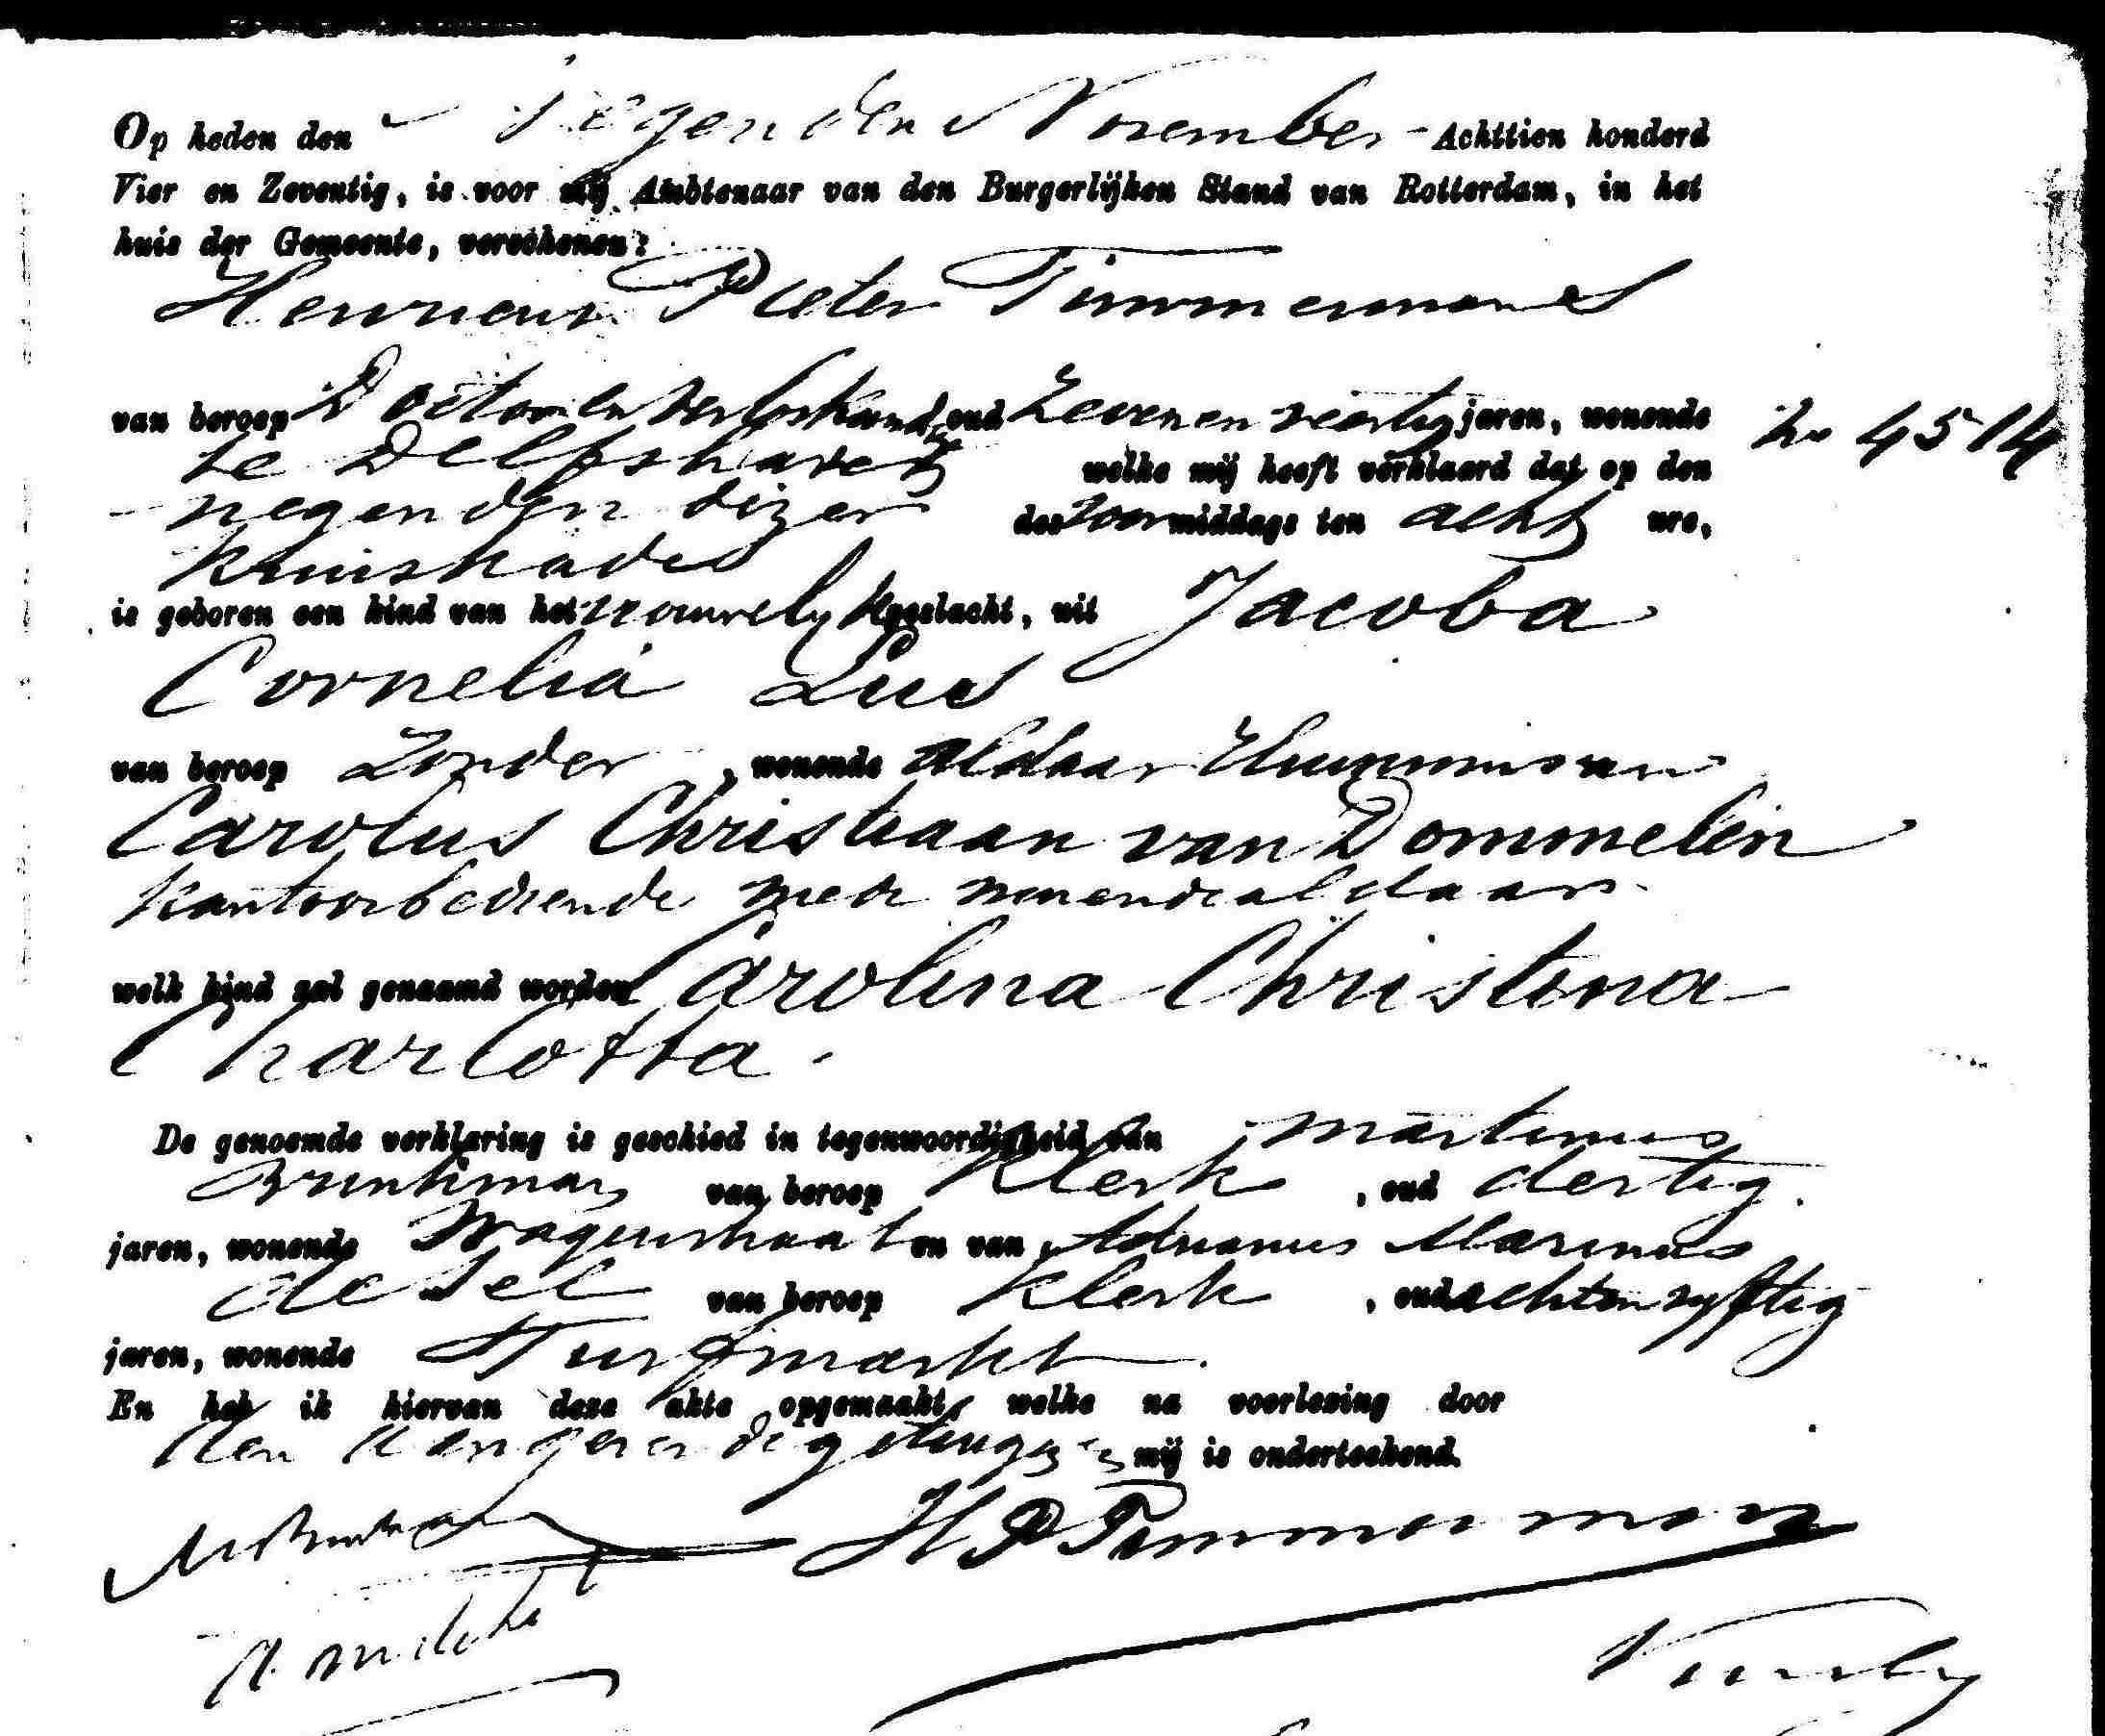 Op heden den Negenden November Achttien honderd
Vier en Zeventig, is voor mij Ambtenaar van den Burgerlijken Stand van Rotterdam, in het
huis der Gemeente, verschenen:
Henricus Pieter Timmermans
van beroep Doctor en verloskund oud Zeven en veertig jaren, wonende
No 4514
te Delfshaven welke mij heeft verklaard dat op den
negenden dezer des Voormiddags ten acht ure,
Kruiskade
is geboren een kind van het vrouwelyk geslacht, uit Jacoba
Cornelia Lus
van beroep Zonder, wonende aldaar
Carolus Christiaan van Dommelen
kantoorbediende mede wonende aldaar
welk kind zal genaamd worden Carolina Christina
Charlotta.
De genoemde verklaring is geschied in tegenwoordigheid van Martinus
Brinkman van beroep Klerk, oud dertig
jaren, wonende Wagenstraat en van Adrianus Marinus
de van beroep Klerk, oud acht en vyftig
jaren, wonende Turfmarkt
En heb ik hiervan deze akte opgemaakt, welke na voorlezing door
den Aangever de getuigen en mij is onderteekend.
HP Timmermans